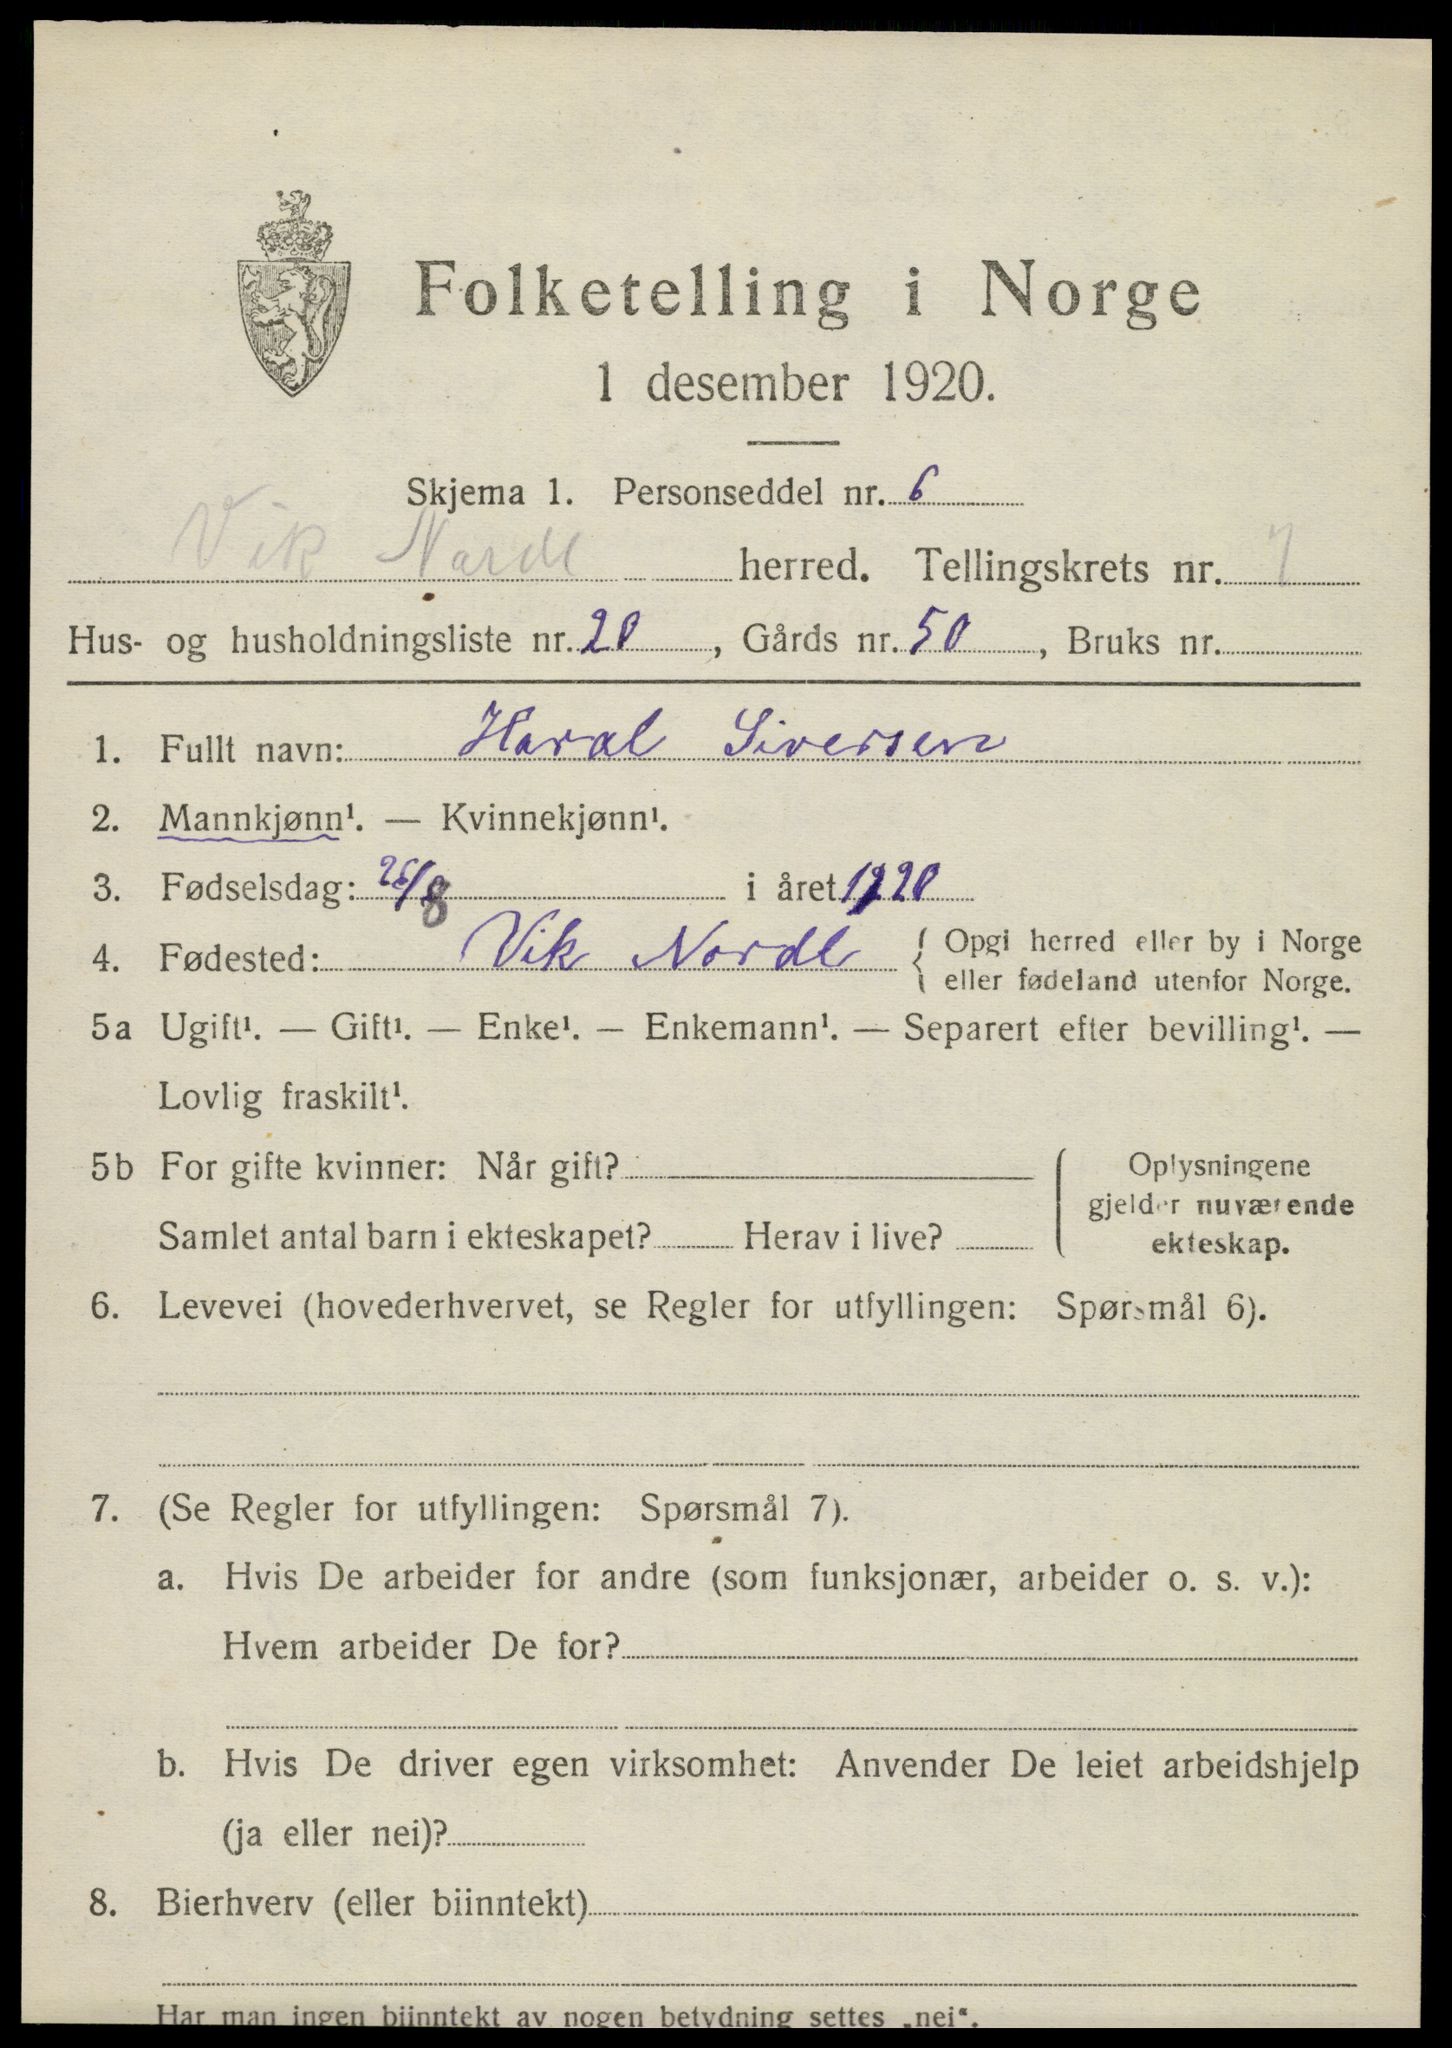 Folketelling i Norge
1 desember 1920.
Skjema 1. Personseddel nr. 6
Vik Nordl herred. Tellingskrets nr. 7
Hus- og husholdningsliste nr. 20, Gårds nr. 50, Bruks nr.
1. Fullt navn: Haral Siversen
2. Mannkjønn¹. — Kvinnekjønn¹.
3. Fødselsdag: 26/8 i året 1920
4. Fødested: Vik Nordl { Opgi herred eller by i Norge
eller fødeland utenfor Norge.
5a Ugift¹. — Gift¹. — Enke¹. — Enkemann¹. — Separert efter bevilling¹. —
Lovlig fraskilt¹.
5b For gifte kvinner: Når gift?
Samlet antal barn i ekteskapet? Herav i live?
Oplysningene
gjelder nuværende
ekteskap.
6. Levevei (hovederhvervet, se Regler for utfyllingen: Spørsmål 6).
7. (Se Regler for utfyllingen: Spørsmål 7).
a. Hvis De arbeider for andre (som funksjonær, arbeider o. s. v.):
Hvem arbeider De for?
b. Hvis De driver egen virksomhet: Anvender De leiet arbeidshjelp
(ja eller nei)?
8. Bierhverv (eller biinntekt)
Har man ingen biinntekt av nogen betydning settes „nei“.